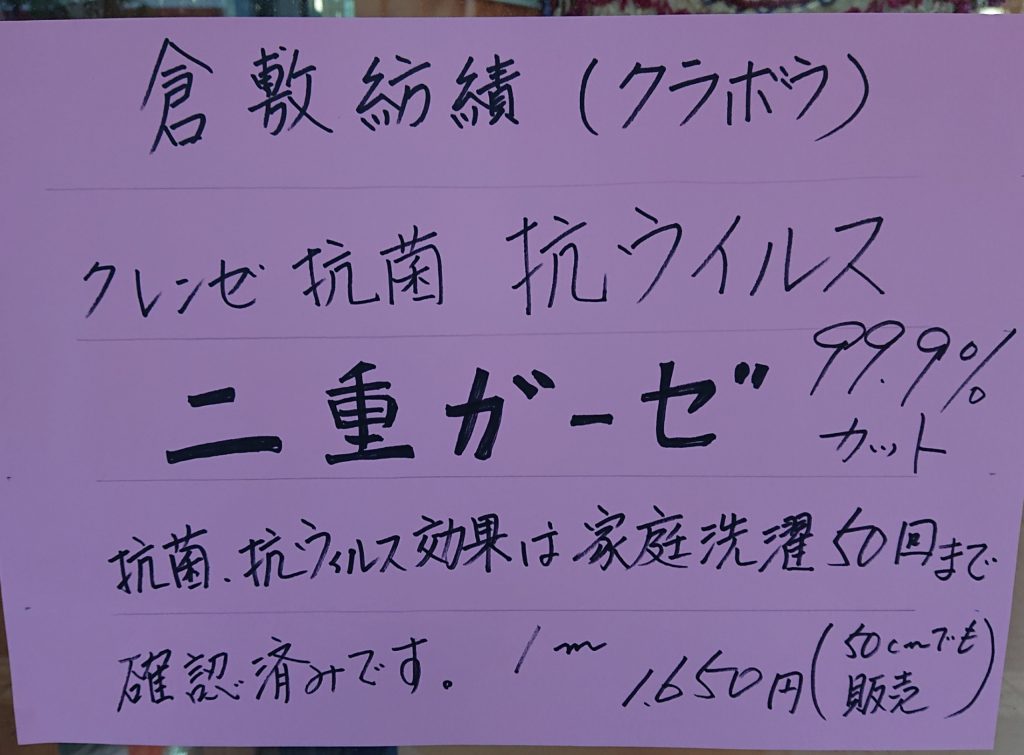 倉敷紡績(クラボウ)
クレンゼ 抗菌 抗ウイルス
二重ガーゼ 99.9%
カット
抗菌、抗ウィルス効果は家庭洗濯50回まで
確認済みです。 1m 1,650円(50cmでも
販売)